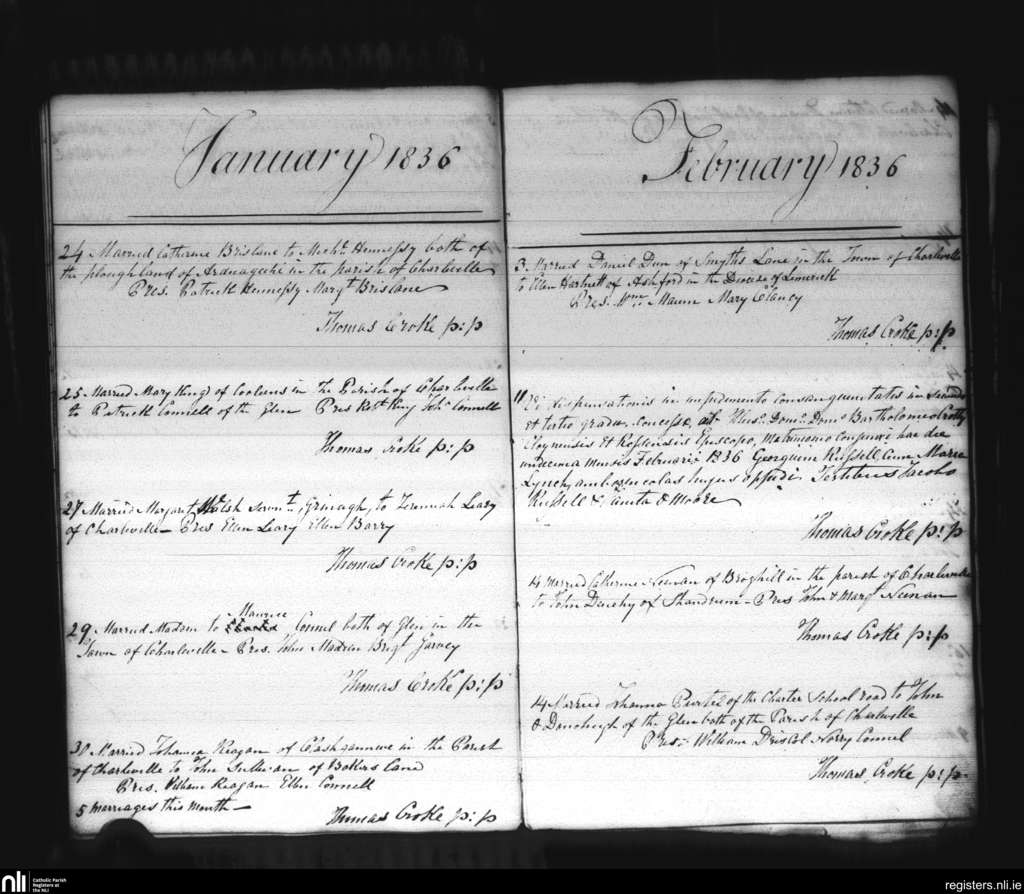 January 1836
24 Married Catharine Brislane to Michl. Hennessy both of
the ploughland of in the parish of Charleville
Pres. Patrick Hennessy Margt. Brislane
Thomas Croke p:p
25 Married Mary King of Coolcus in the Parish of Charleville
to Patrick Connell of the Glen Pres Robt. King Johs. Connell
Thomas Croke p:p
27 Married Margaret Walsh to Jeremiah Leary
of Charleville – Pres Ellen Leary Ellen Barry
Thomas Croke p:p
Maurice
29 Married Madam to Connel both of Glen in the
Town of Charleville – Pres. John Brigt. Garvey
Thomas Croke p:p
30 Married Johanna Reagan of in the Parish
of Charleville to John Sullivan of Bakers Lane
Pres. William Reagan Ellen Connell
5 marriages this Month –
Thomas Croke p:p
February 1836
3 Married Daniel Dun of Smyths Lane in the Town of Charleville
to Ellen Hartnett of Ashford in the Diocese of Limerick
Pres. Wm. Maunn Mary Clancy
Thomas Croke p:p
11 Vi dispensationis in impedimento consanguinitatis in secundo
et tertio gradu concessæ, ab Illmo. Domno. Domno. Bartholomeo Crotty
Cloynensis et Rossensis Episcopo, Matrimonio conjunxi hac die
undecima mensis Februarii 1836 Georgium Russell cum Maria
Lynch, ambos incolas hujus oppidi. Testibus Jacobo
Russell & Anita O Moore
Thomas Croke p:p
14 Married Catherine Neenan of Broghill in the parish of Charleville
to John Denehy of Shandrum – Pres John & Margt Neenan
Thomas Croke p:p
14 Married Johanna of the Charter School road to John
O Donohugh of the Glen both of the Parish of Charleville
Pres. William Driscol Norry Connel
Thomas Croke p:p
nli
Catholic Parish
Registers at
the NLI
registers.nli.ie